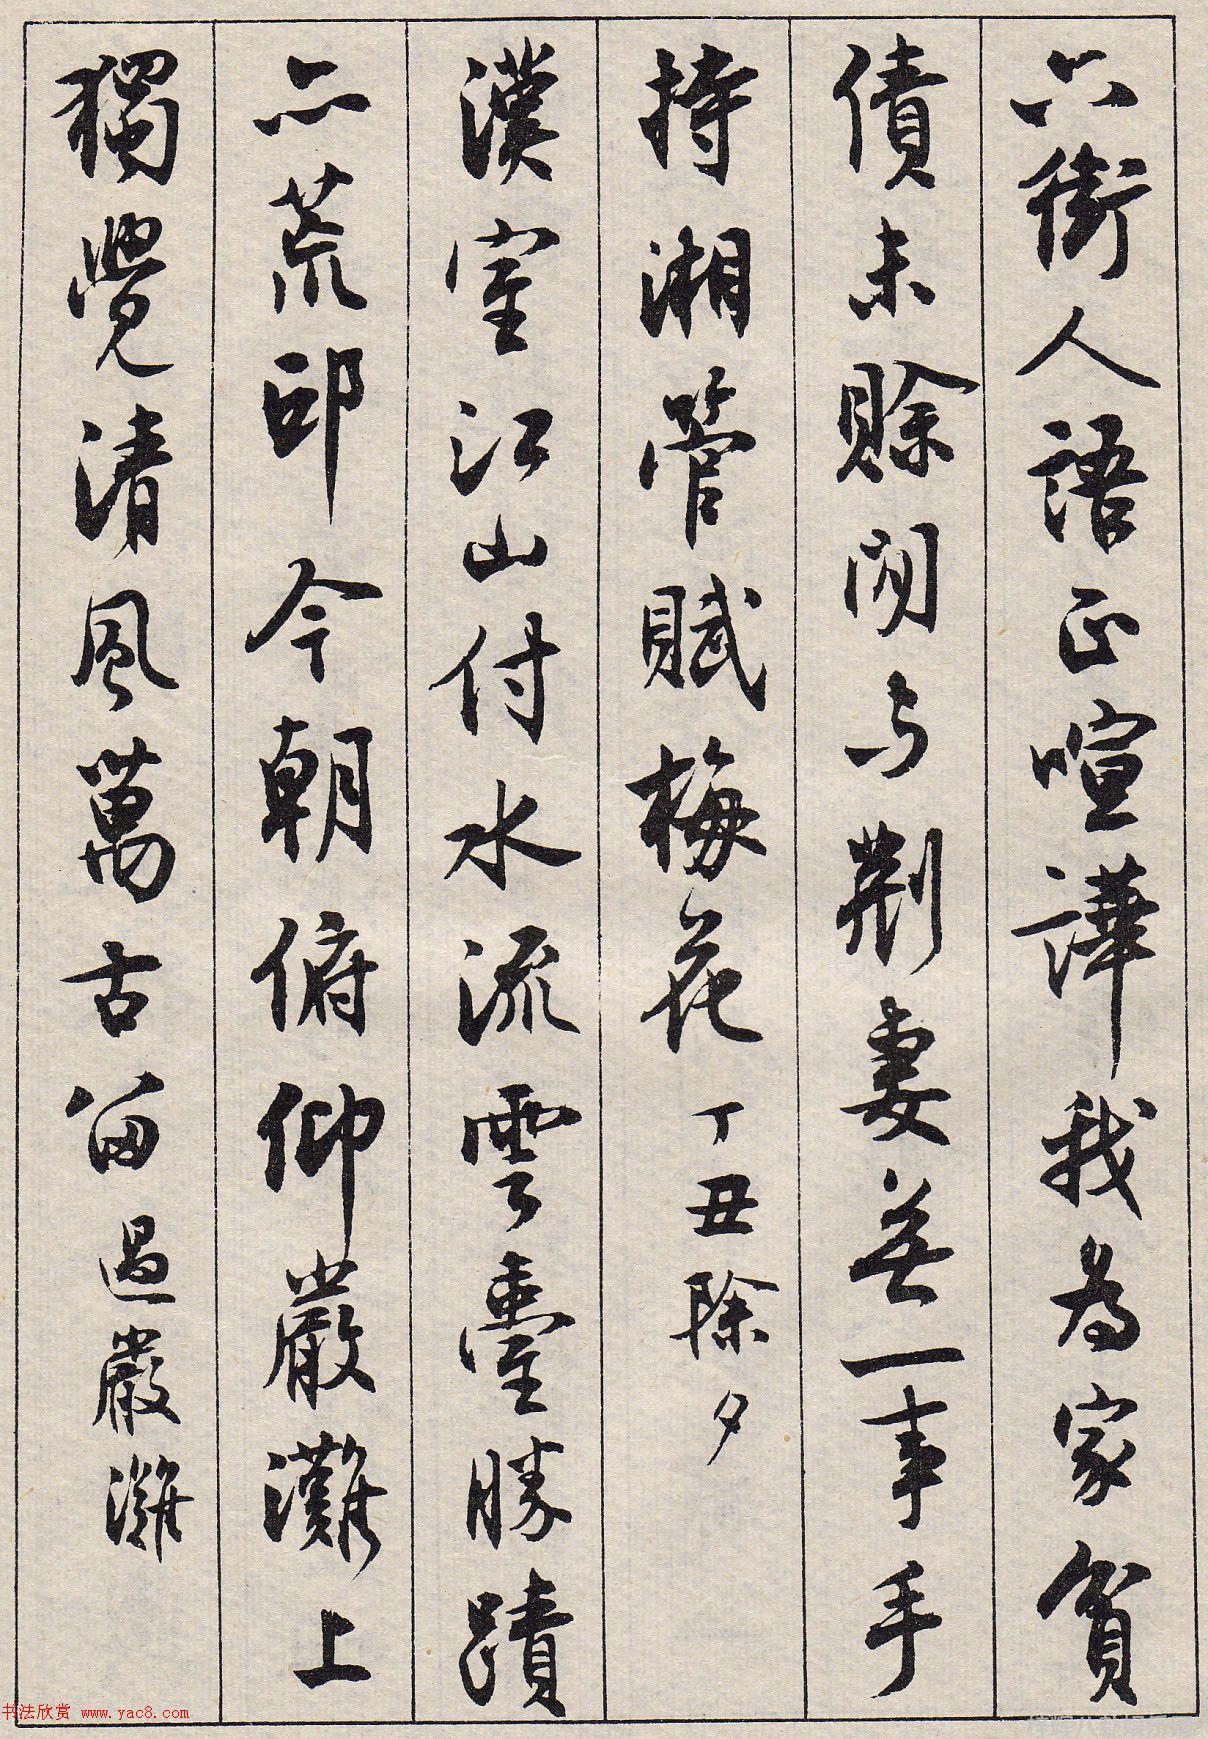 六街人語正喧譁我為家貧
債未賒閒与荆妻無一事手
持湘管賦梅花 丁丑除夕
漢室江山付水流雲臺勝蹟
亦荒邱今朝俯仰嚴灘上
獨覺清風萬古留 過嚴灘
书法欣赏 www.yac8.com